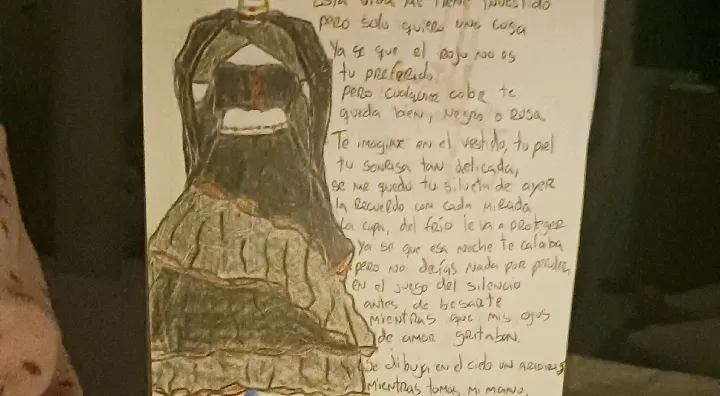 Esta vida me tiene investido
pero solo quiero una cosa
Ya se que el rojo no es
tu preferido
pero cualquier color te
queda bien, negro o rosa
Te imagine en el vestido, tu piel
tu sonrisa tan delicada,
se me quedo tu silueta de ayer
la recuerdo con cada mirada
la capa, del frio le va a proteger
Ya se que esa noche te calaba
pero no decias nada por
en el juego del silencio
antes de besarte
mientras que mis ojos
de amor gritaban.
Se dibuja en el cielo un
mientras tomas mi mano,